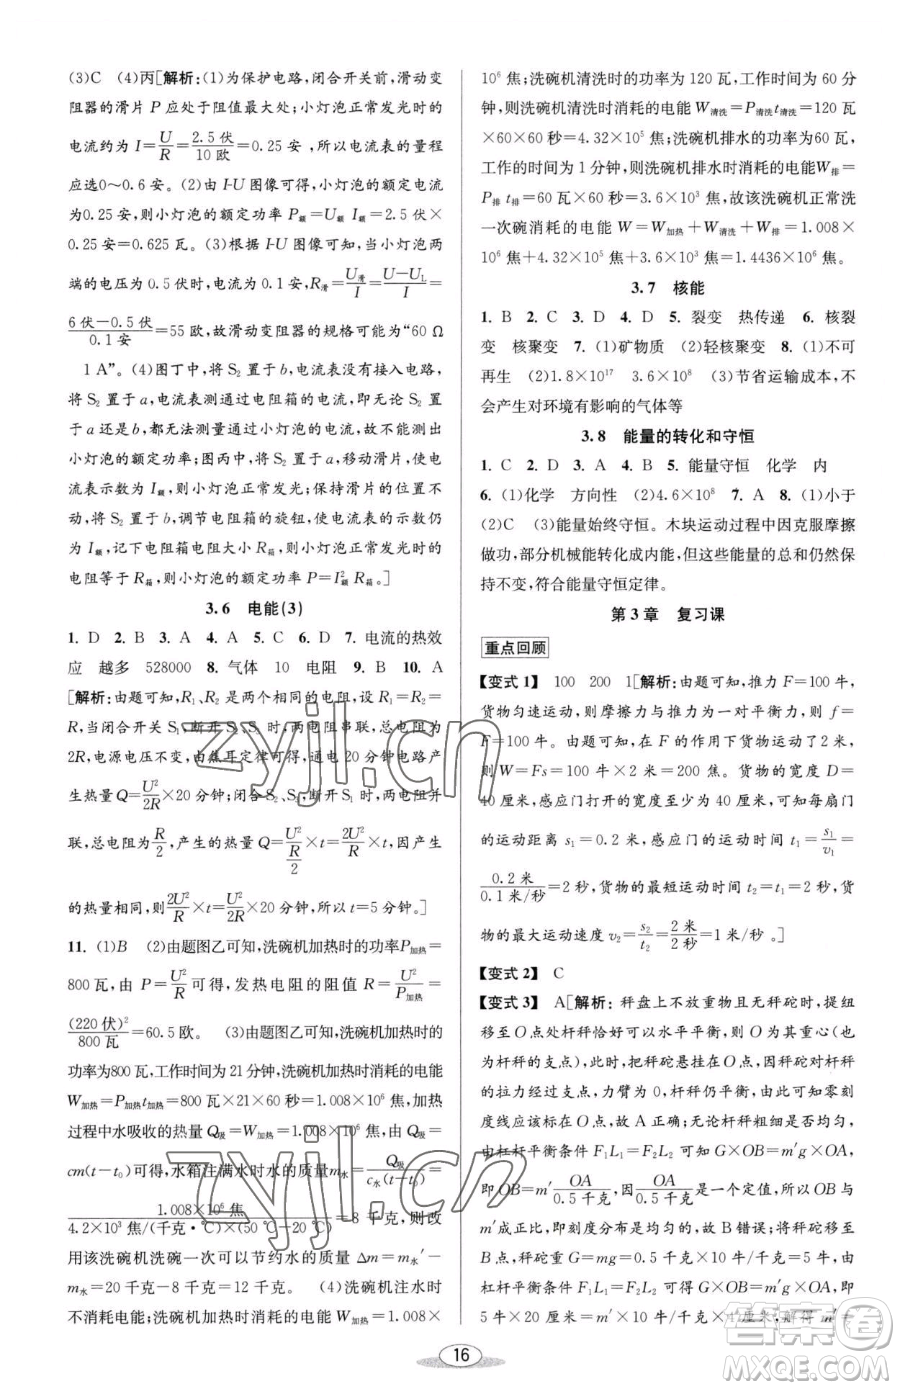 (3)C (4)丙[解析:(1)为保护电路,闭合开关前,滑动变
阻器的滑片 P 应处于阻值最大处;小灯泡正常发光时的
电流约为 I=U/R=2.5 伏/10 欧=0.25 安,所以电流表的量程
应选0~0.6 安。(2)由 I-U 图像可得,小灯泡的额定电流
为0.25 安,则小灯泡的额定功率 P额=U额 I额=2.5 伏×
0.25 安=0.625 瓦。(3)根据 I-U 图像可知,当小灯泡两
端的电压为 0.5 伏时,电流为 0.1 安,R滑=U滑/I=(U-UL)/I=
(6 伏-0.5 伏)/0.1 安=55 欧,故滑动变阻器的规格可能为“60 Ω
1 A”。(4)图丁中,将 S₂ 置于 b,电流表无法接入电路,
将 S₂ 置于 a,电流表测通过电阻箱的电流,即无论 S₂ 置
于 a 还是 b,都无法测量通过小灯泡的电流,故不能测出
小灯泡的额定功率;图丙中,将 S₂ 置于 a,移动滑片,使电
流表示数为 I额,则小灯泡正常发光;保持滑片的位置不
变,将 S₂ 置于 b,调节电阻箱的旋钮,使电流表的示数仍
为 I额,记下电阻箱电阻大小 R箱,此时小灯泡电阻与电
阻箱电阻等于 R箱,小灯泡的额定功率 P=I²额R箱。]
3.6 电能(3)
1. D 2. B 3. A 4. A 5. C 6. D 7. 电流的热效
应 越多 528000 8. 气体 10 电阻 9. B 10. A
[解析:由题可知,R₁、R₂ 是两个相同的电阻,设 R₁=R₂=
R,当闭合开关 S₁、断开 S₂、S₃ 时,两电阻串联,总电阻为
2R,电源电压不变,由焦耳定律可得,通电 20 分钟电路产
生热量 Q=U²/2R×20 分钟;闭合 S₂、S₃,断开 S₁ 时,两电阻并
联,总电阻为R/2,产生的热量 Q=U²/(R/2)×t=2U²/R×t,因产生
的热量相同,则2U²/R×t=U²/2R×20 分钟,所以 t=5 分钟。]
11. (1)B (2)由题图乙可知,洗碗机加热时的功率P加热=
800 瓦,由 P=U²/R可得,发热电阻的阻值 R=U²/P加热=
(220 伏)²/800 瓦=60.5 欧。 (3)由题图乙可知,洗碗机加热时的
功率为800 瓦,工作时间为 21 分钟,洗碗机加热时消耗的电能
W加热=P加热t加热=800 瓦×21×60 秒=1.008×10⁶ 焦;加热
过程中水吸收的热量 Q吸=W加热=1.008×10⁶ 焦,由 Q吸=
cm(t-t₀)可得,水箱注满水时水的质量m水=Q吸/c水(t-t₀)=
1.008×10⁶ 焦/4.2×10³ 焦/(千克·℃)×(50 ℃-20 ℃)=8 千克,则改
用该洗碗机洗碗一次可以节约水的质量 Δm=m水′-
m水=20 千克-8 千克=12 千克。 (4)洗碗机注水时
不消耗电能;洗碗机加热时消耗的电能 W加热=1.008×
10⁶ 焦;洗碗机清洗时的功率为 120 瓦,工作时间为 60 分
钟,则洗碗机清洗时消耗的电能 W清洗=P清洗t清洗=120 瓦
×60×60 秒=4.32×10⁵ 焦;洗碗机排水的功率为 60 瓦,
工作的时间为 1 分钟,则洗碗机排水时消耗的电能W排=
P排t排=60 瓦×60 秒=3.6×10³ 焦,故该洗碗机正常洗
一次碗消耗的电能 W=W加热+W清洗+W排=1.008×
10⁶ 焦+4.32×10⁵ 焦+3.6×10³ 焦=1.4436×10⁶ 焦。
3.7 核能
1. B 2. C 3. D 4. D 5. 裂变 热传递 6. 核裂
变 核聚变 7. (1)矿物质 (2)轻核聚变 8. (1)不可
再生 (2)1.8×10¹⁷ 3.6×10⁸ (3)节省运输成本,不
会产生对环境有影响的气体等
3.8 能量的转化和守恒
1. C 2. D 3. A 4. B 5. 能量守恒 化学 内
6. (1)化学 方向性 (2)4.6×10⁸ 7. A 8. (1)小于
(2)C (3)能量始终守恒。木块运动过程中因克服摩擦
做功,部分机械能转化成内能,但这些能量的总和仍然保
持不变,符合能量守恒定律。
第 3 章 复习课
重点回顾
【变式 1】 100 200 1[解析:由题可知,推力 F=100 牛,
货物匀速运动,所以摩擦力与推力为一对平衡力,则 f=
F=100 牛。由题可知,在 F 的作用下货物运动了 2 米,
则 W=Fs=100 牛×2 米=200 焦。货物的宽度 D=
40 厘米,感应门打开的宽度至少为 40 厘米,则每扇门
的运动距离 s₁=0.2 米,感应门的运动时间 t₁=s₁/v₁=
0.2 米/0.1 米/秒=2 秒,货物的最短运动时间 t₂=t₁=2 秒,货
物的最大运动速度 v₂=s₂/t₂=2 米/2 秒=1 米/秒。]
【变式 2】 C
【变式 3】 A[解析:秤盘上不放重物且无秤砣时,提纽
移至 O 点处杆秤可以水平平衡,则 O 为其重心(也为杆
秤的支点),此时,把秤砣悬挂在 O 点,秤砣对杆秤
的拉力经过支点,力臂为 0,杆秤仍平衡,此处的零刻
度线应该标在 O 点,故 A 正确;无论杆秤粗细是否均匀,
由杠杆平衡条件 F₁L₁=F₂L₂ 可得 G×OB=m′g×OA,
即 OB=m′OA/0.5 千克,因为OA/0.5 千克是一个定值,所以 OB 与 m′
成正比,即刻度分布均匀,故 B 错误;将秤砣挂在 B
点,秤砣重 G=mg=0.5 千克×10 牛/千克=5 牛,由
杠杆平衡条件 F₁L₁=F₂L₂ 可得 G×OB=m′g×OA,即
5 牛×20 厘米=m′×10 牛/千克×4厘米,解得 m′=
16
zyjl.cn
zyjl.cn
答案圈
MXQE.COM